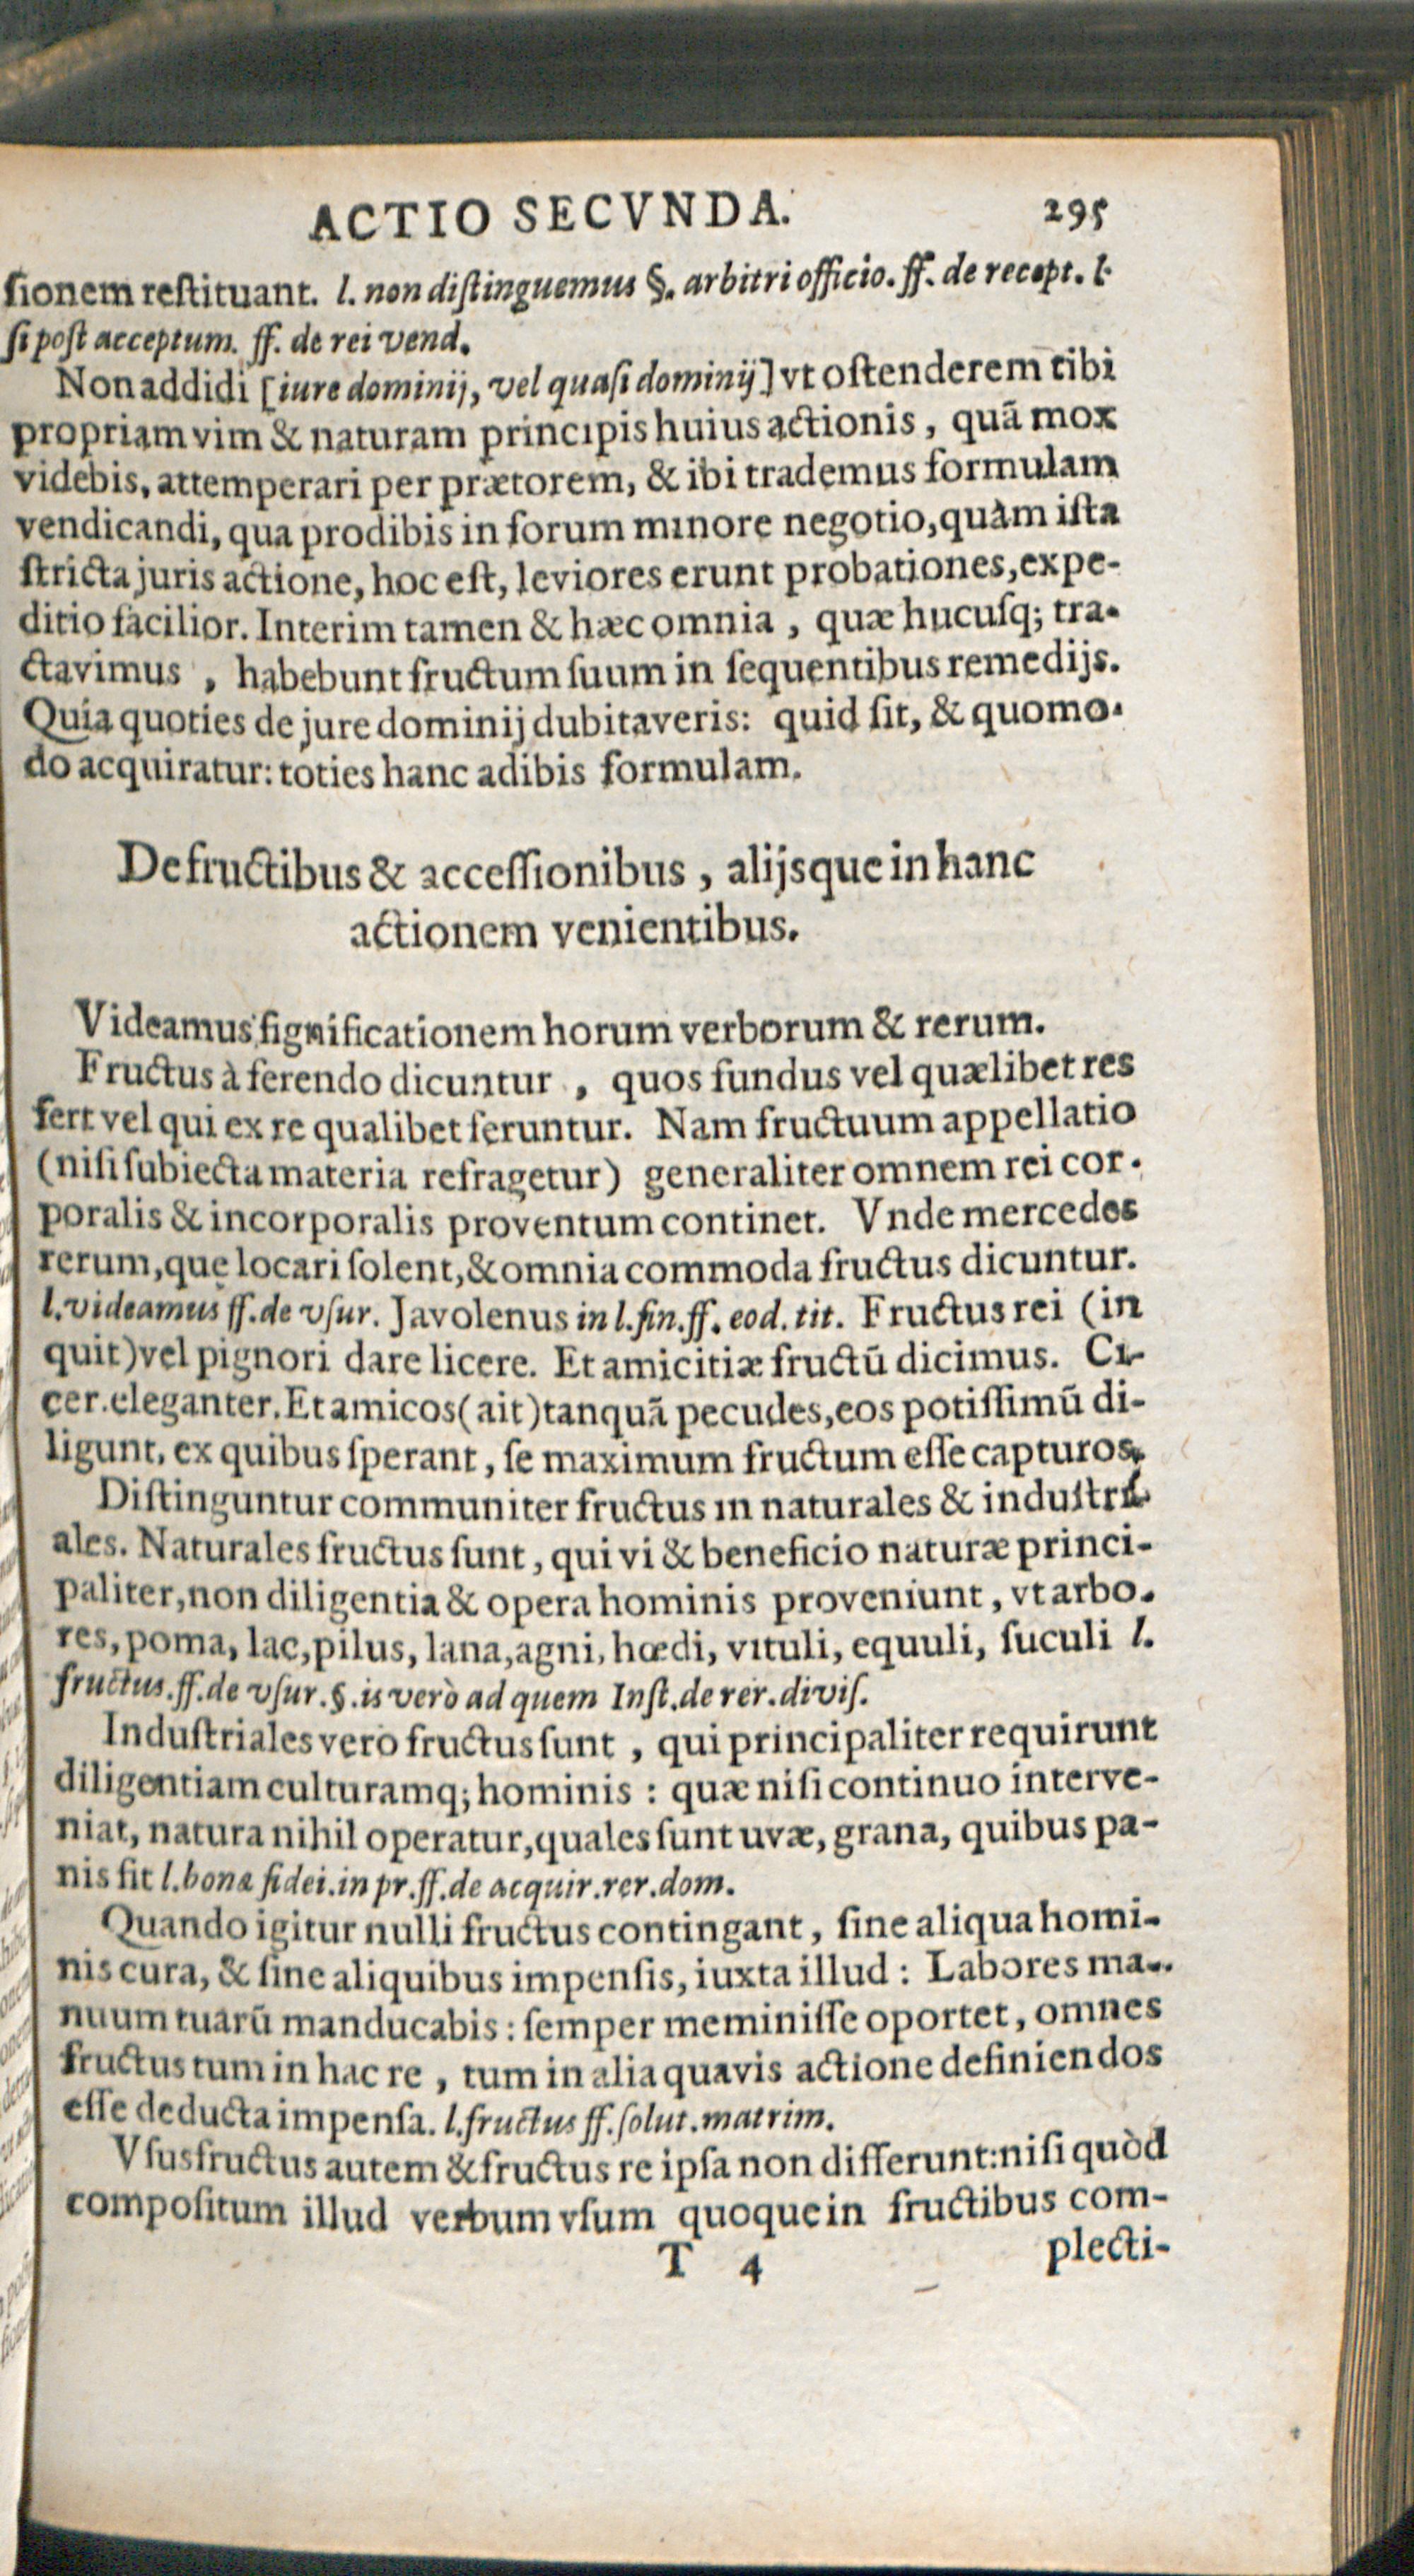 ACTIO SECVNDA. 295
ſionem reſtituant. l. non diſtinguemus §. arbitri officio. ff. de recept. l.
ſi poſt acceptum. ff. de rei vend.
Non addidi [iure dominij, vel quaſi dominij] vt oſtenderem tibi
propriam vim & naturam principis huius actionis, quā mox
videbis, attemperari per prætorem, & ibi trademus formulam
vendicandi, qua prodibis in forum minore negotio, quàm iſta
ſtricta juris actione, hoc eſt, leviores erunt probationes, expe-
ditio facilior. Interim tamen & hæc omnia, quæ hucuſq; tra-
ctavimus, habebunt fructum ſuum in ſequentibus remedijs.
Quia quoties de jure dominij dubitaveris: quid ſit, & quomo-
do acquiratur: toties hanc adibis formulam.
De fructibus & acceſſionibus, alijsque in hanc
actionem venientibus.
Videamus ſignificationem horum verborum & rerum.
Fructus à ferendo dicuntur, quos fundus vel quælibet res
fert vel qui ex re qualibet feruntur. Nam fructuum appellatio
(niſi ſubiecta materia refragetur) generaliter omnem rei cor-
poralis & incorporalis proventum continet. Vnde mercedes
rerum, quę locari ſolent, & omnia commoda fructus dicuntur.
l. videamus ff. de vſur. Javolenus in l. fin. ff. eod. tit. Fructus rei (in
quit) vel pignori dare licere. Et amicitiæ fructū dicimus. Ci-
cer. eleganter. Et amicos (ait) tanquā pecudes, eos potiſſimū di-
ligunt, ex quibus ſperant, ſe maximum fructum eſſe capturos.
Diſtinguntur communiter fructus in naturales & induſtri-
ales. Naturales fructus ſunt, qui vi & beneficio naturæ princi-
paliter, non diligentia & opera hominis proveniunt, vt arbo-
res, poma, lac, pilus, lana, agni, hœdi, vituli, equuli, ſuculi l.
fructus. ff. de vſur. §. is verò ad quem Inſt. de rer. diviſ.
Induſtriales vero fructus ſunt, qui principaliter requirunt
diligentiam culturamq; hominis: quæ niſi continuo interve-
niat, natura nihil operatur, quales ſunt uvæ, grana, quibus pa-
nis fit l. bonæ fidei. in pr. ff. de acquir. rer. dom.
Quando igitur nulli fructus contingant, ſine aliqua homi-
nis cura, & ſine aliquibus impenſis, iuxta illud: Labores ma-
nuum tuarū manducabis: ſemper meminiſſe oportet, omnes
fructus tum in hac re, tum in alia quavis actione definiendos
eſſe deducta impenſa. l. fructus ff. ſolut. matrim.
Vſusfructus autem & fructus re ipſa non differunt: niſi quòd
compoſitum illud verbum vſum quoque in fructibus com-
T 4 plecti-